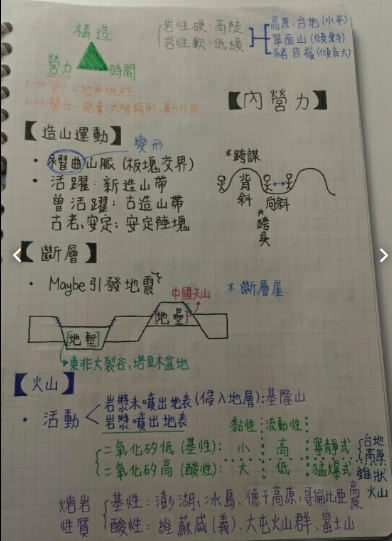 構造
營力 時間
岩性硬:高陡
岩性軟:低緩
高原、台地(水平)
單面山(傾斜)
豬背嶺(傾角大)
【內營力】
【造山運動】 變形
• 褶曲山脈(板塊交界)
• 活躍:新造山帶
曾活躍:古造山帶
古老、安定:安定陸塊
*跨謀
背斜
向斜
*跨吳
【斷層】
• Maybe引發地震
中國天山
*斷層崖
地塹
地壘
東非大裂谷、塔里木盆地
【火山】
• 活動
岩漿未噴出地表(侵入地層):基隆山
岩漿噴出地表
黏性 流動性
二氧化矽低(基性): 小 高 寧靜式 台地 高原
二氧化矽高(酸性): 大 低 猛爆式 錐狀火山
熔岩性質
基性:澎湖、冰島、德干高原、哥倫比亞高原
酸性:維蘇威(義)、大屯火山群、富士山